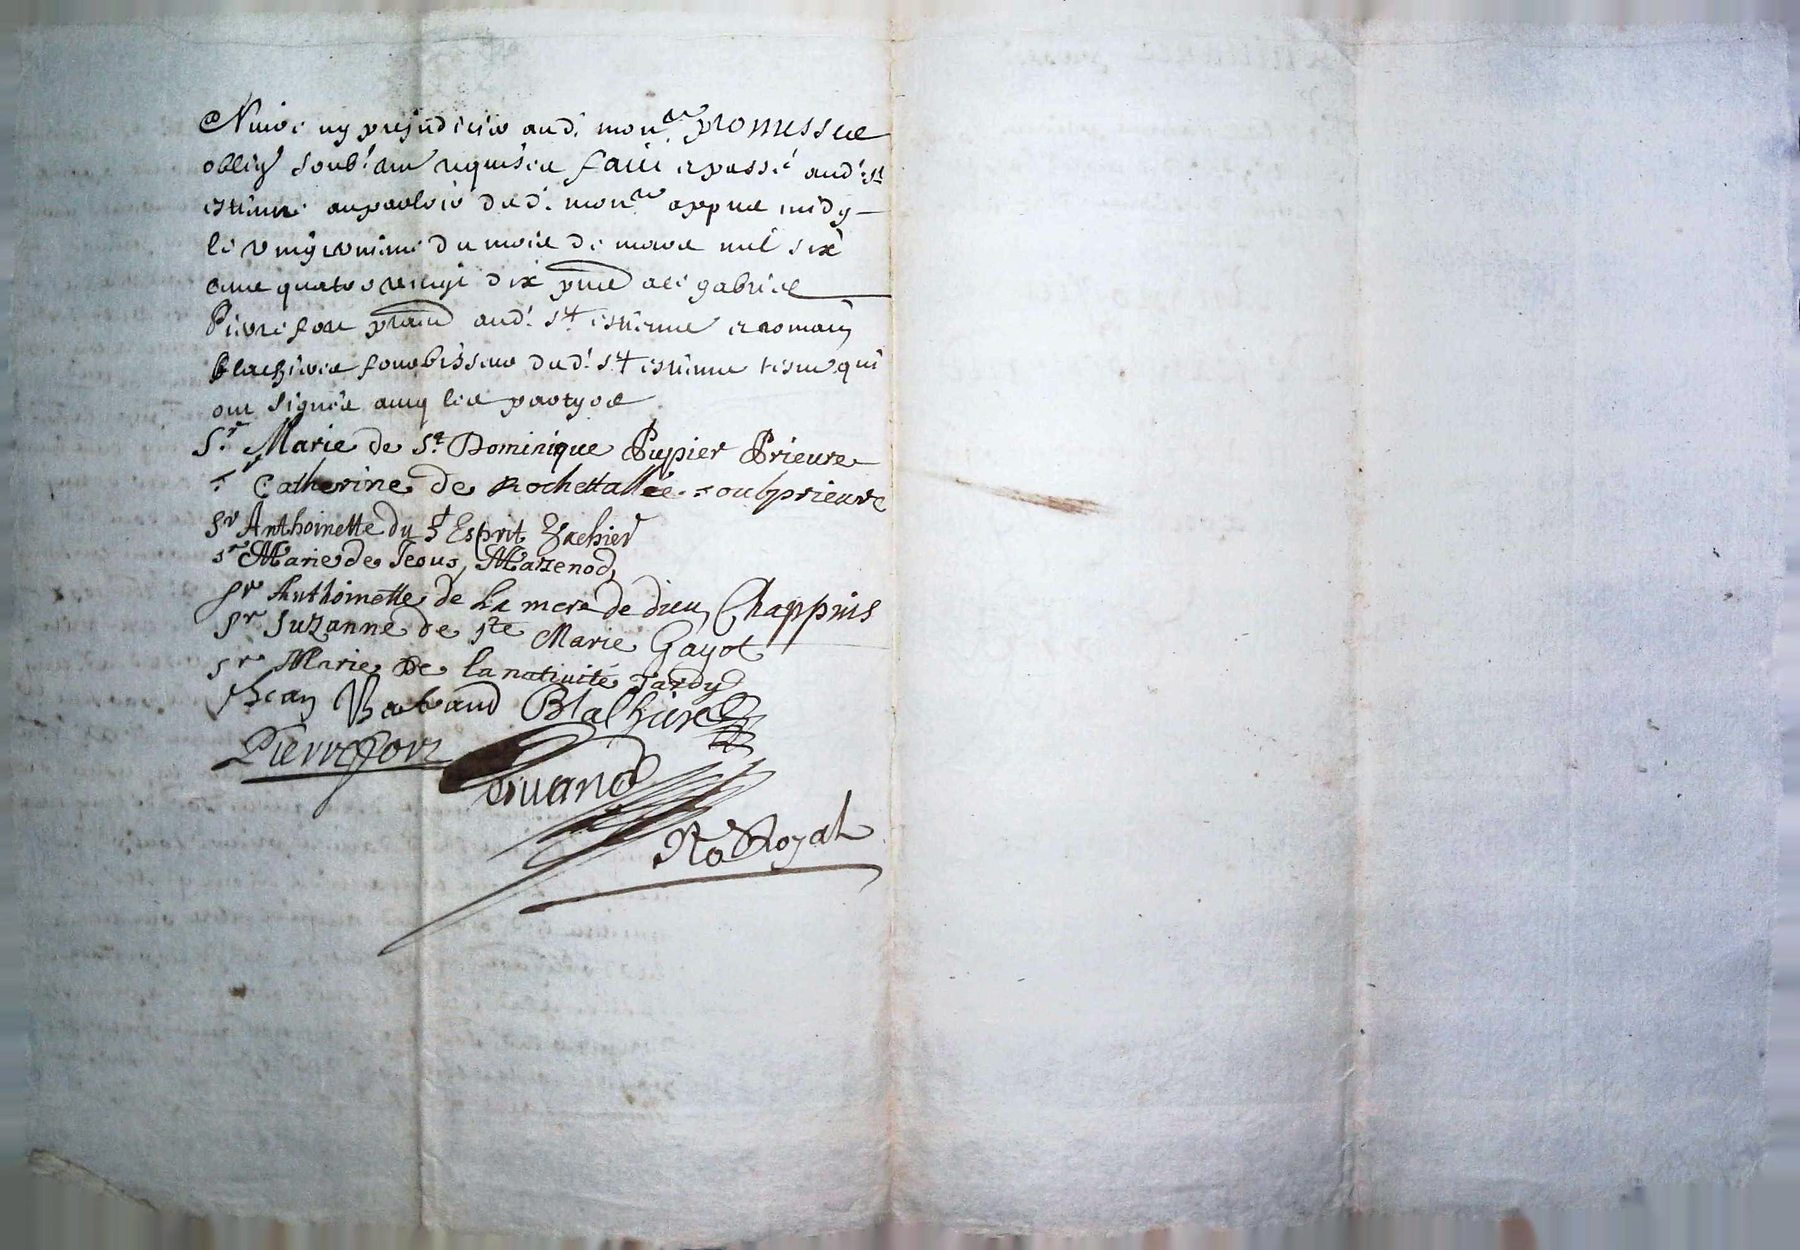 Nuire ny prejudicier aud. mon.re promesses
oblig. soub. am requises faict et passé aud. st
estienne au parloir dud. mon.re appres midy
le vingt uniesme du mois de mars mil six
cens quatre vingt dix pnts alé gabriel
Pierrefort prattn aud. st estienne et romain
blachiere fourbisseur dud. st estienne tesm. qui
ont signés avec les partyes
Sr Marie de St Dominique Pupier Prieure
Sr Catherine de Rochettallée soubprieure
Sr Anthoinette du St Esprit Vachier
sr Marie de Jesus Mazenod
Sr Anthoinette de La mere de dieu Chappuis
Sr Suzanne de ste Marie Gayot
sr Marie De la nativité Tardy
Jean Barbaud Blachiere
Pierrefort
Royal